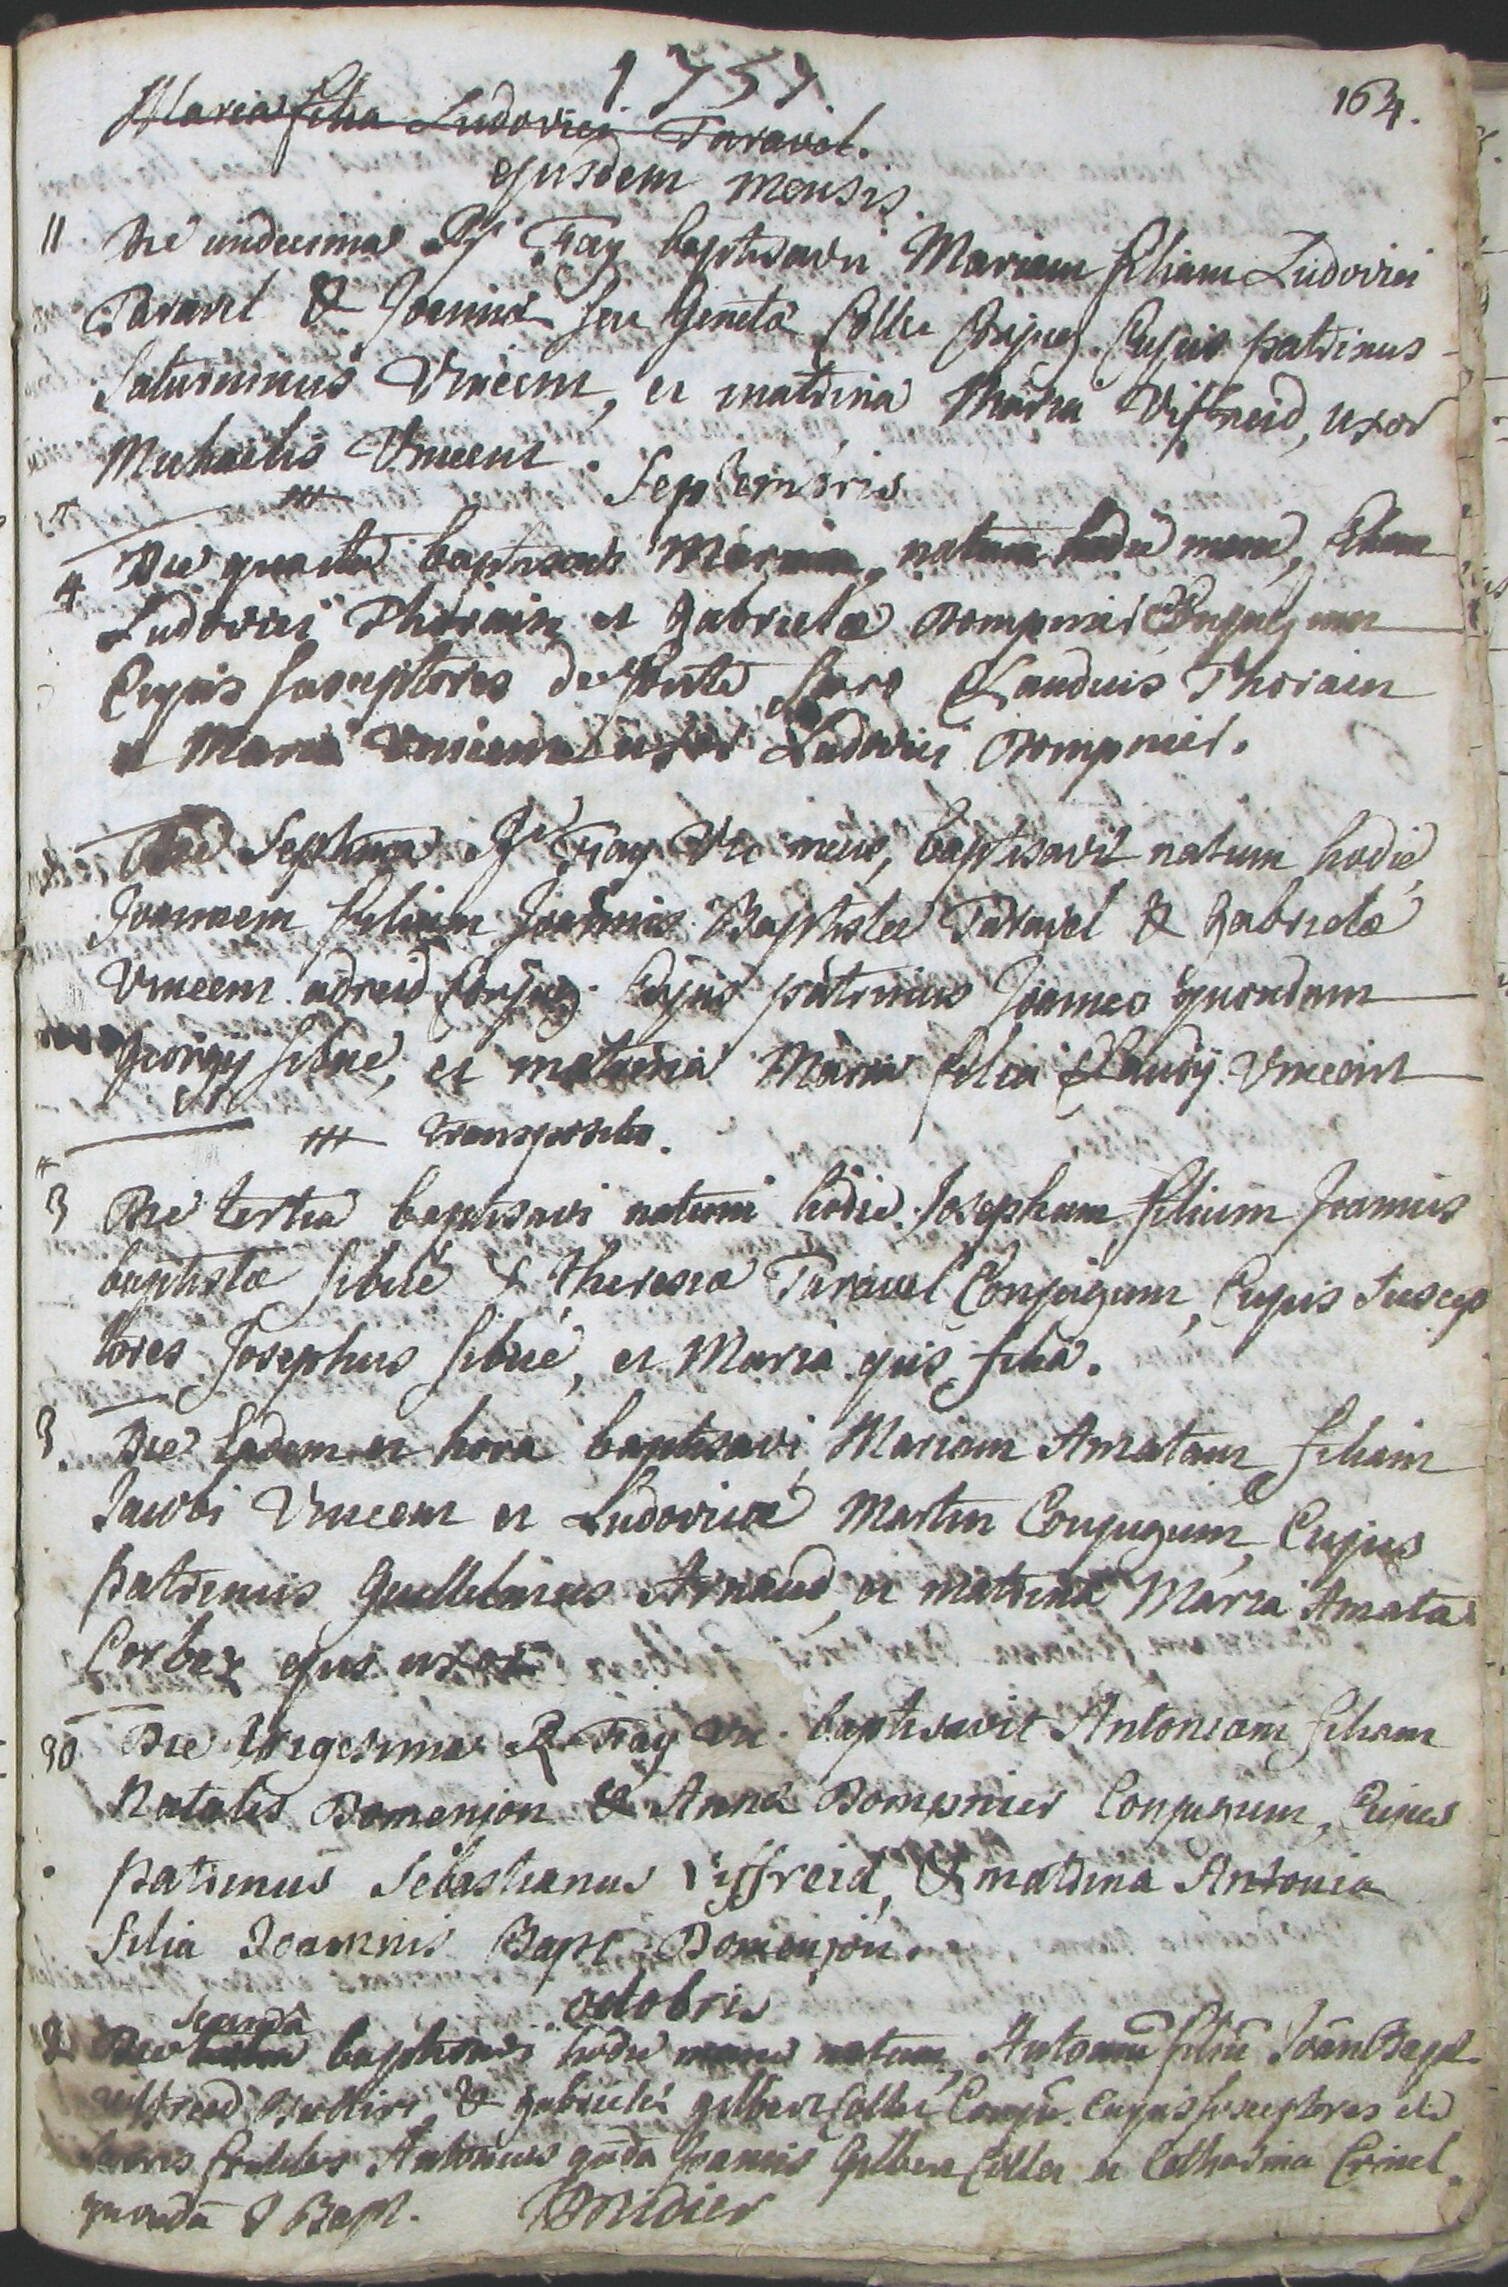 1757.
164.
Maria filia Ludovici Taravel.
ejusdem mensis.
11 Die undecima Rs Fay baptisavit Mariam filiam Ludovici
Taravel & Joanna seu Geneta Collet Conjug. Cujus patrinus
Saturninus Vincent, et matrina Maria Viffreid, uxor
Michaelis Vincent.
Septembris
4 Die quarta baptisavi Mariam, natam hodie mane, filiam
Ludovici Thorain et Gabriela Dompnier Conjugum
Cujus susceptores de fonte sacro Claudius Thorain
et Maria Vincent uxor Ludovici Dompnier.
Die Septima Rs Fay Vic meus, baptisavit natum hodie,
Joannem filium Joannis Baptistæ Taravel & Gabriela
Vincent Conjug. Cujus patrinus Joannes quondam
Georgij Sibué, et matrina Maria filia Claudij Vincent
transposita.
3 Die tertia baptisavi natum hodie Josephum filium Joannis
baptista Sibué & Theresia Taravel Conjugum, Cujus suscep
tores Josephus Sibué, et Maria ejus filia.
3. Die Eadem et hora baptisavi Mariam Amatam filiam
Jacobi Vincent et Ludovica Martin Conjugum, Cujus
patrinus Guillelmus Arnaud, et matrina Maria Amata
Corbex ejus uxor
30 Die trigesima R. Fay Vic. baptisavit Antoniam filiam
Natalis Domenjon & Anna Dompnier Conjugum, Cujus
patrinus Sebastianus Viffreid, & matrina Antonia
filia Joannis Bapt. Domenjon.
octobris
secunda
2 Die baptisavi hodie mane natum, Antoniu filiu Joan Bapt.
Viffreid & gabriela gilbert Collet Conju. Cujus susceptores de
sacris fontibus Antonius qda Joannis Gilbert Collet et Catharina Crinel
quonda J Bapt. Didier